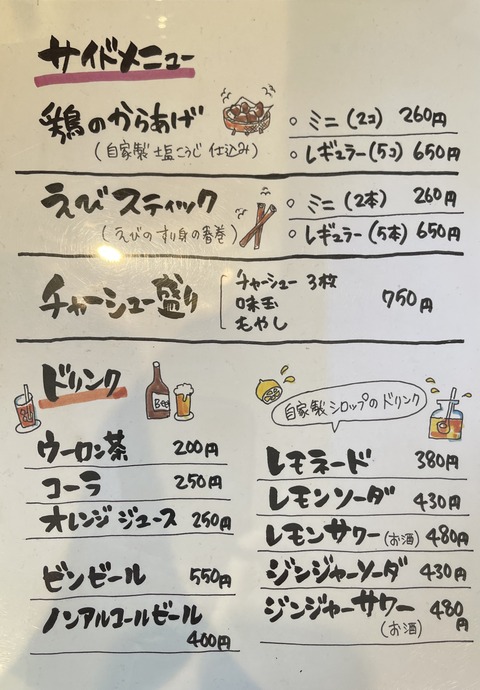 サイドメニュー
鶏のからあげ
(自家製 塩こうじ 仕込み)
○ ミニ (2コ) 260円
○ レギュラー (5コ) 650円
えびスティック
(えびのすり身の春巻)
○ ミニ (2本) 260円
○ レギュラー (5本) 650円
チャーシュー盛り
チャーシュー 3枚
味玉
もやし
750円
ドリンク
Beer
ウーロン茶 200円
コーラ 250円
オレンジジュース 250円
ビンビール 550円
ノンアルコールビール
400円
自家製シロップのドリンク
レモネード 380円
レモンソーダ 430円
レモンサワー (お酒) 480円
ジンジャーソーダ 430円
ジンジャーサワー 480円
(お酒)